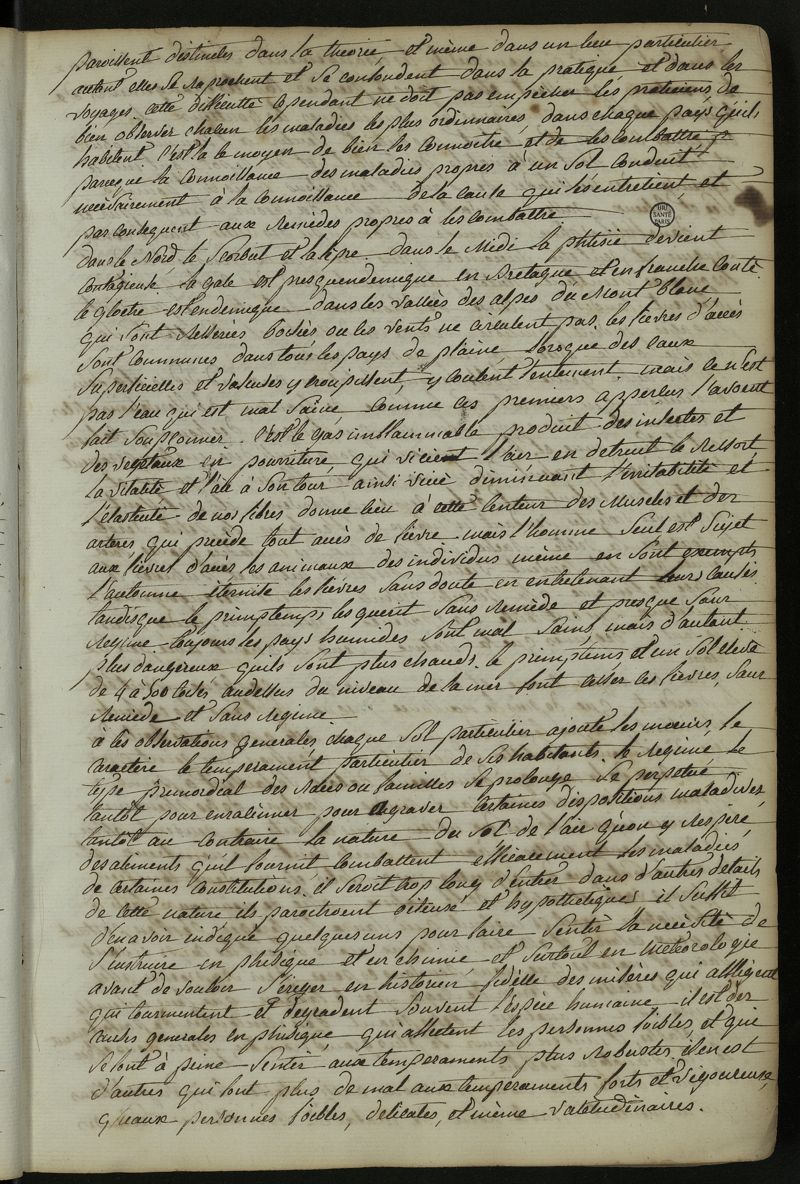 paroissent distinctes dans la theorie et même dans un lieu particulier
autant elles se raprochent et se confondent dans la pratique et dans les
voyages. cette difficultté cependant ne doit pas empecher les praticiens de
bien observer chacun les maladies les plus ordinnaires, dans chaque pays qu'ils
habitent c'est la le moyen de bien les connoitre et de les combattre
parceque la connoissance des maladies propres à un sol conduit
necéssairement à la connoissance de la cause qui les entretient, et
par consequent aux remèdes propres à les combattre.
BIU SANTÉ PARIS
dans le Nord le scorbut et la lepre dans le Midi la phtisie devient
contagieuse la gale est presqu'endemique en Bretagne et en franche Conté.
le gloetre est endemique dans les vallées des alpes du Mont blanc
qui sont resserées boisées ou les vents ne circulent pas. les fievres d'accés
sont communnes dans tous les pays de plaine lorsque des eaux
superficielles et vaseuses y croupissent, y coulent lentement. mais ce n'est
pas l'eau qui est mal saine comme ces premiers appercus l'avoient
fait soupçonner. c'est le gas imflammable produit des insectes et
des vegetaux en pourriture, qui vicient l'air en detruit le ressort
la vitalité et l'air à son tour ainsi vicié diminuant l'irritabilité et
l'élasticité de nos fibres donne lieu à cette lenteur des Muscles et des
arteres qui precede tout accès de fievre mais l'homme seul est sujet
aux fievres d'accès les animaux des individus même en sont exempts
l'automne éternise les fievres sans doute en entretenant leurs causes
tandisque le primptemps les guerit sans remède et presque sans
regime toujours les pays humides sont mal sains mais d'autant
plus dangereux quils sont plus chauds. le primptems et un sol elevé
de 4 à 500 toises audessus du niveau de la mer font cesser ces fievres, sans
remède et sans regime.
à ces observations generales, chaque sol particulier ajoute les moeurs, le
caractère le temperament particulier de ses habitants. le regime le
type primordial des races ou familles se prolonge se perpetue
tantôt pour enraciner pour agraver certaines dispositions maladives
tantôt au contraire la nature du sol de l'air qu'on y respire,
des aliments qu'il fournit combattent efficacement les maladies,
de certaines constitutions. il seroit trop long d'entrer dans d'autres details
de cette nature ils paroitroient oiteuse et hypothetiques il suffit
d'en avoir indiqué quelques uns pour faire sentir la nécéssité de
s'instruire en phisique et en chimie et surtout en Météorologie
avant de vouloir s'eriger en historien fidelle des misères qui affligent
qui tourmentent et dégradent souvent l'espece humaine il est des
causes generales en phisique qui affectent les personnes foibles, et qui
se font à peine sentir aux temperaments plus robustes, il en est
d'autres qui font plus de mal aux temperaments forts et vigoureux,
qu'aux personnes foibles, delicates, et même valetudinaires.